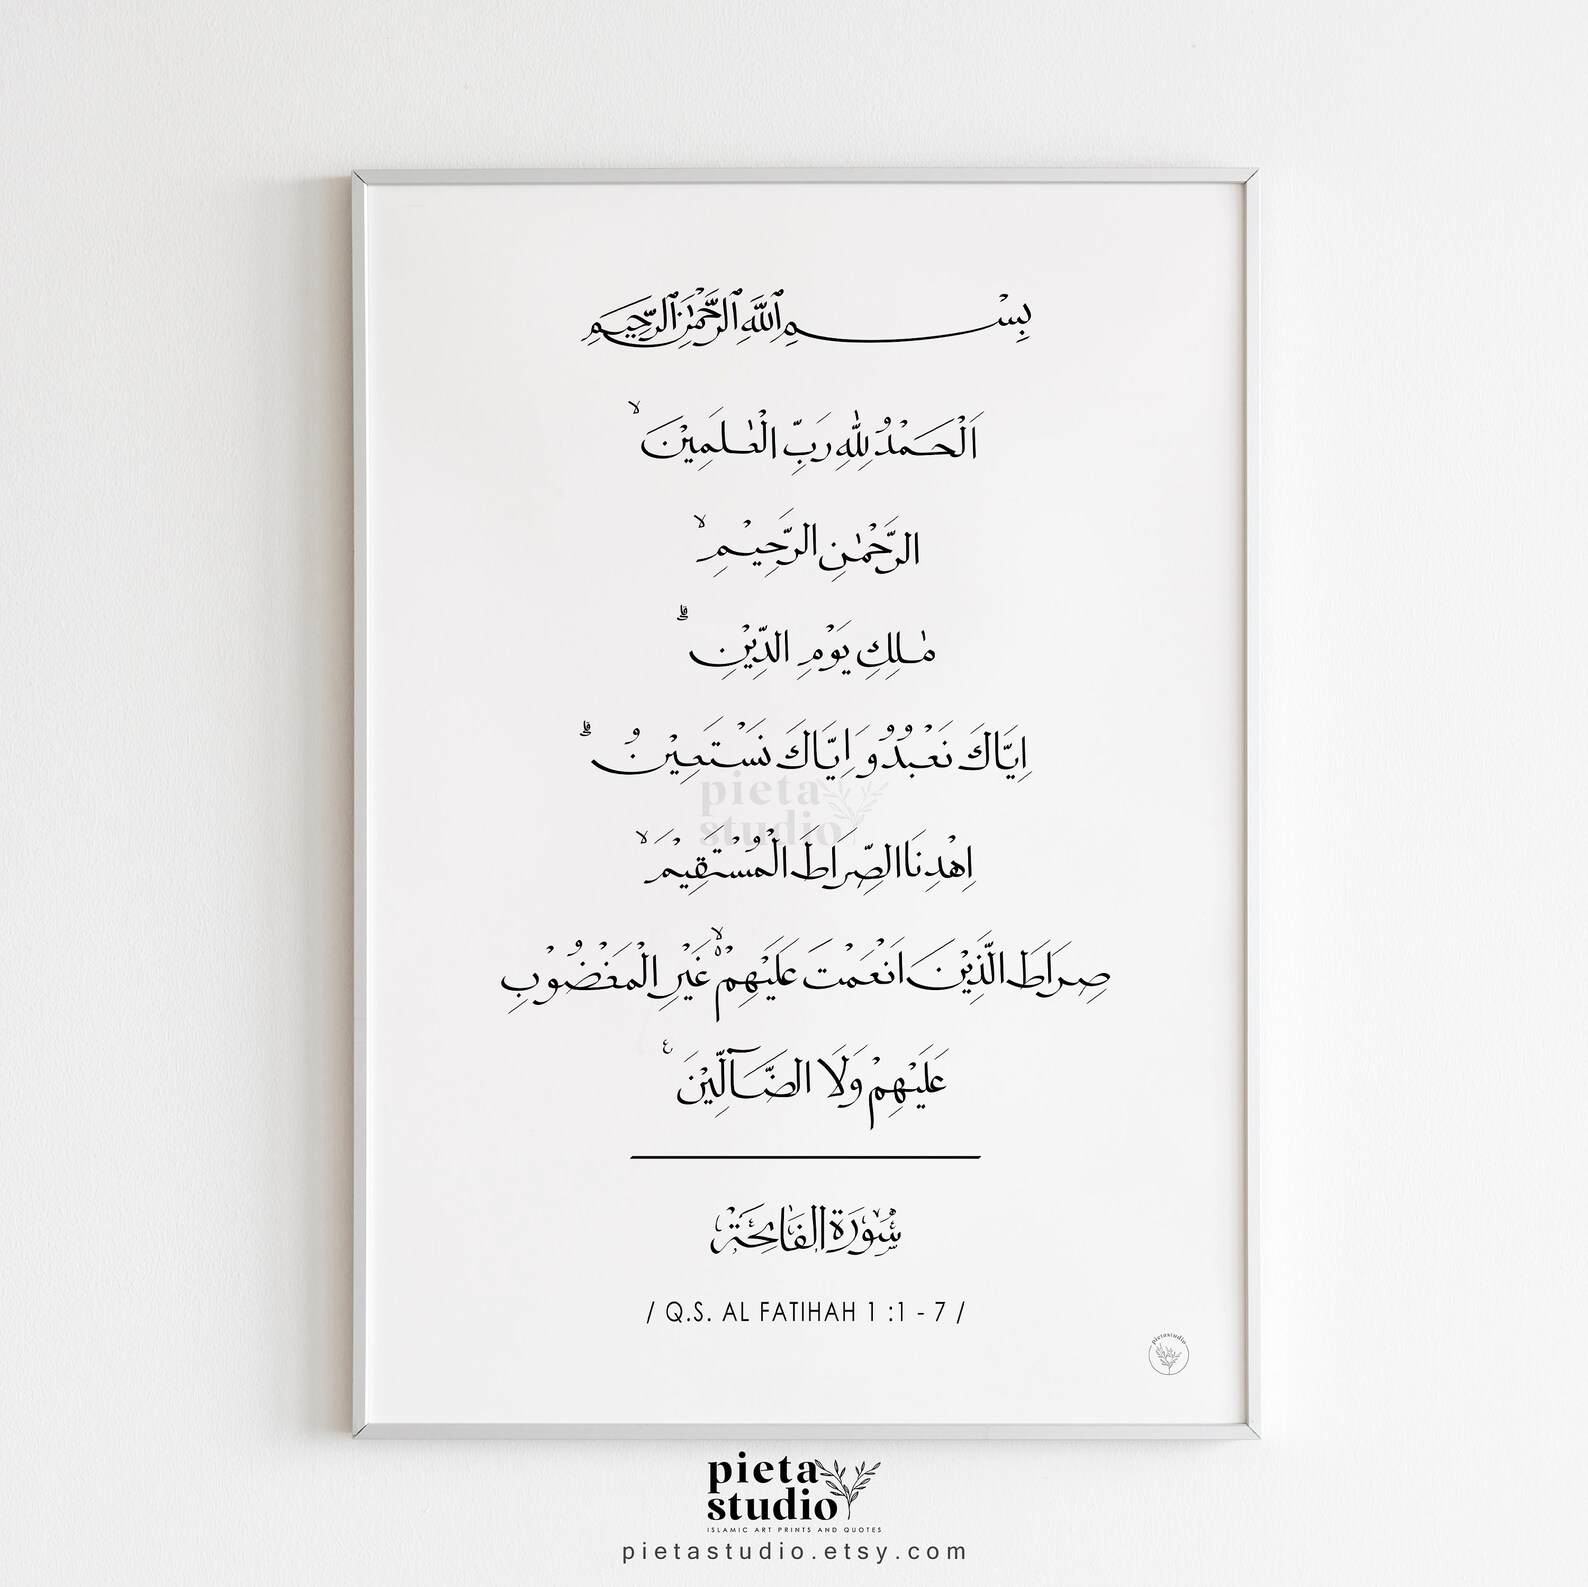 بِسْمِ ٱللَّهِ ٱلرَّحْمَٰنِ ٱلرَّحِيمِ
اَلْحَمْدُ لِلّٰهِ رَبِّ الْعٰلَمِيْنَ ۙ
الرَّحْمٰنِ الرَّحِيْمِ ۙ
مٰلِكِ يَوْمِ الدِّيْنِ ۗ
اِيَّاكَ نَعْبُدُ وَاِيَّاكَ نَسْتَعِيْنُ ۗ
pieta
studio
اِهْدِنَا الصِّرَاطَ الْمُسْتَقِيْمَ ۙ
صِرَاطَ الَّذِيْنَ اَنْعَمْتَ عَلَيْهِمْ ۙ غَيْرِ الْمَغْضُوْبِ
عَلَيْهِمْ وَلَا الضَّاۤلِّيْنَ ࣖ
سُوْرَةُ الفَاتِحَة
/ Q.S. AL FATIHAH 1 :1 - 7 /
pietastudio
pieta
studio
ISLAMIC ART PRINTS AND QUOTES
pietastudio.etsy.com